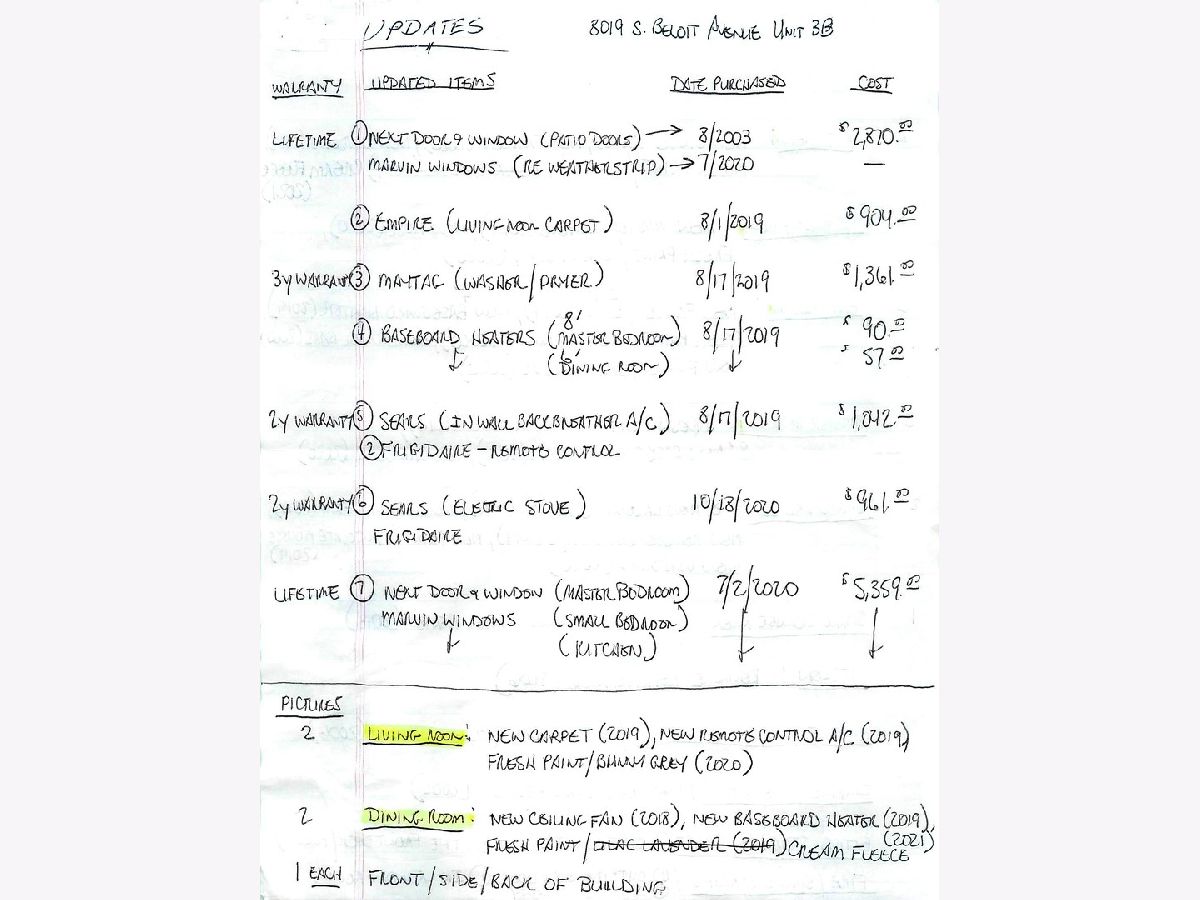 UPDATES 8019 S. BELOIT AVENUE UNIT 3B
WARRANTY UPDATED ITEMS DATE PURCHASED COST
LIFETIME ① NEXT DOOR & WINDOW (PATIO DOORS) → 8/2003 $2,870.00
MARVIN WINDOWS (RE WEATHERSTRIP) → 7/2020 —
② EMPIRE (LIVING ROOM CARPET) 8/1/2019 $904.00
3y WARRANTY ③ MAYTAG (WASHER/DRYER) 8/17/2019 $1,361.00
8'
④ BASEBOARD HEATERS (MASTER BEDROOM) 8/17/2019 $90.00
(DINING ROOM) $57.00
2y WARRANTY ⑤ SEARS (IN WALL A/C) 8/17/2019 $1,042.00
② FRIGIDAIRE - REMOTE CONTROL
2y WARRANTY ⑥ SEARS (ELECTRIC STOVE) 10/18/2020 $961.00
FRIGIDAIRE
LIFETIME ⑦ NEXT DOOR & WINDOW (MASTER BEDROOM) 7/2/2020 $5,359.00
MARVIN WINDOWS (SMALL BEDROOM)
(KITCHEN)
PICTURES
2 LIVING ROOM: NEW CARPET (2019), NEW REMOTE CONTROL A/C (2019)
FRESH PAINT/BUNNY GREY (2020)
2 DINING ROOM: NEW CEILING FAN (2018), NEW BASEBOARD HEATER (2019),
FRESH PAINT/LILAC LAVENDER (2019) CREAM FLEECE (2021)
1 EACH FRONT/SIDE/BACK OF BUILDING